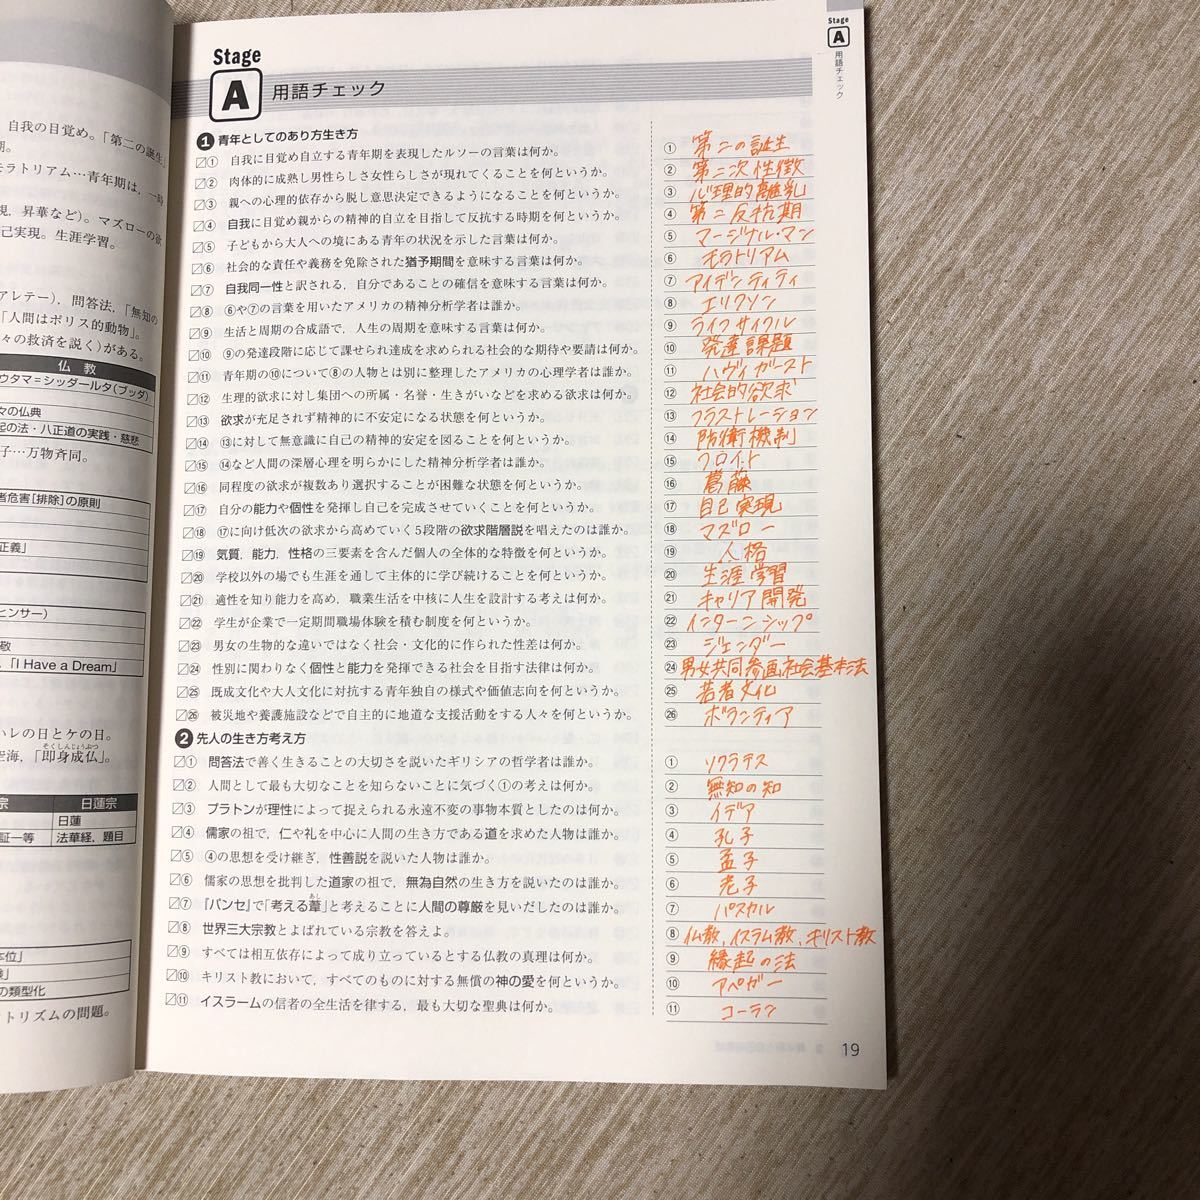 自我の目覚め。「第二の誕生」
期。
モラトリアム…青年期は，一時
現，昇華など)。マズローの欲
己実現。生涯学習。
アレテー)，問答法，「無知の
「人間はポリス的動物」。
々の救済を説く)がある。
仏 教
ウタマ=シッダールタ(ブッダ)
々の仏典
起の法・八正道の実践・慈悲
子…万物斉同。
者危害[排除]の原則
正義」
ヒンサー)
敬
，「I Have a Dream」
ハレの日とケの日。
空海，「即身成仏」。
そくしんじょうぶつ
宗 日蓮宗
日蓮
証一等 法華経，題目
本位」
の類型化
トリズムの問題。
Stage
A 用語チェック
❶ 青年としてのあり方生き方
① 自我に目覚め自立する青年期を表現したルソーの言葉は何か。
② 肉体的に成熟し男性らしさ女性らしさが現れてくることを何というか。
③ 親への心理的依存から脱し意思決定できるようになることを何というか。
④ 自我に目覚め親からの精神的自立を目指して反抗する時期を何というか。
⑤ 子どもから大人への境にある青年の状況を示した言葉は何か。
⑥ 社会的な責任や義務を免除された猶予期間を意味する言葉は何か。
⑦ 自我同一性と訳される，自分であることの確信を意味する言葉は何か。
⑧ ⑥や⑦の言葉を用いたアメリカの精神分析学者は誰か。
⑨ 生活と周期の合成語で，人生の周期を意味する言葉は何か。
⑩ ⑨の発達段階に応じて課せられ達成を求められる社会的な期待や要請は何か。
⑪ 青年期の⑩について⑧の人物とは別に整理したアメリカの心理学者は誰か。
⑫ 生理的欲求に対し集団への所属・名誉・生きがいなどを求める欲求は何か。
⑬ 欲求が充足されず精神的に不安定になる状態を何というか。
⑭ ⑬に対して無意識に自己の精神的安定を図ることを何というか。
⑮ ⑭など人間の深層心理を明らかにした精神分析学者は誰か。
⑯ 同程度の欲求が複数あり選択することが困難な状態を何というか。
⑰ 自分の能力や個性を発揮し自己を完成させていくことを何というか。
⑱ ⑰に向け低次の欲求から高めていく5段階の欲求階層説を唱えたのは誰か。
⑲ 気質，能力，性格の三要素を含んだ個人の全体的な特徴を何というか。
⑳ 学校以外の場でも生涯を通して主体的に学び続けることを何というか。
㉑ 適性を知り能力を高め，職業生活を中核に人生を設計する考えは何か。
㉒ 学生が企業で一定期間職場体験を積む制度を何というか。
㉓ 男女の生物的な違いではなく社会・文化的に作られた性差は何か。
㉔ 性別に関わりなく個性と能力を発揮できる社会を目指す法律は何か。
㉕ 既成文化や大人文化に対抗する青年独自の様式や価値志向を何というか。
㉖ 被災地や養護施設などで自主的に地道な支援活動をする人々を何というか。
❷ 先人の生き方考え方
① 問答法で善く生きることの大切さを説いたギリシアの哲学者は誰か。
② 人間として最も大切なことを知らないことに気づく①の考えは何か。
③ プラトンが理性によって捉えられる永遠不変の事物本質としたのは何か。
④ 儒家の祖で，仁や礼を中心に人間の生き方である道を求めた人物は誰か。
⑤ ④の思想を受け継ぎ，性善説を説いた人物は誰か。
⑥ 儒家の思想を批判した道家の祖で，無為自然の生き方を説いたのは誰か。
⑦ 『パンセ』で「考える葦」と考えることに人間の尊厳を見いだしたのは誰か。
あし
⑧ 世界三大宗教とよばれている宗教を答えよ。
⑨ すべては相互依存によって成り立っているとする仏教の真理は何か。
⑩ キリスト教において，すべてのものに対する無償の神の愛を何というか。
⑪ イスラームの信者の全生活を律する，最も大切な聖典は何か。
① 第二の誕生
② 第二次性徴
③ 心理的離乳
④ 第二反抗期
⑤ マージナル・マン
⑥ モラトリアム
⑦ アイデンティティ
⑧ エリクソン
⑨ ライフサイクル
⑩ 発達課題
⑪ ハヴィガースト
⑫ 社会的欲求
⑬ フラストレーション
⑭ 防衛機制
⑮ フロイト
⑯ 葛藤
⑰ 自己実現
⑱ マズロー
⑲ 人格
⑳ 生涯学習
㉑ キャリア開発
㉒ インターンシップ
㉓ ジェンダー
㉔ 男女共同参画社会基本法
㉕ 若者文化
㉖ ボランティア
① ソクラテス
② 無知の知
③ イデア
④ 孔子
⑤ 孟子
⑥ 老子
⑦ パスカル
⑧ 仏教，イスラム教，キリスト教
⑨ 縁起の法
⑩ アペガー
⑪ コーラン
Stage
A
用語チェック
19